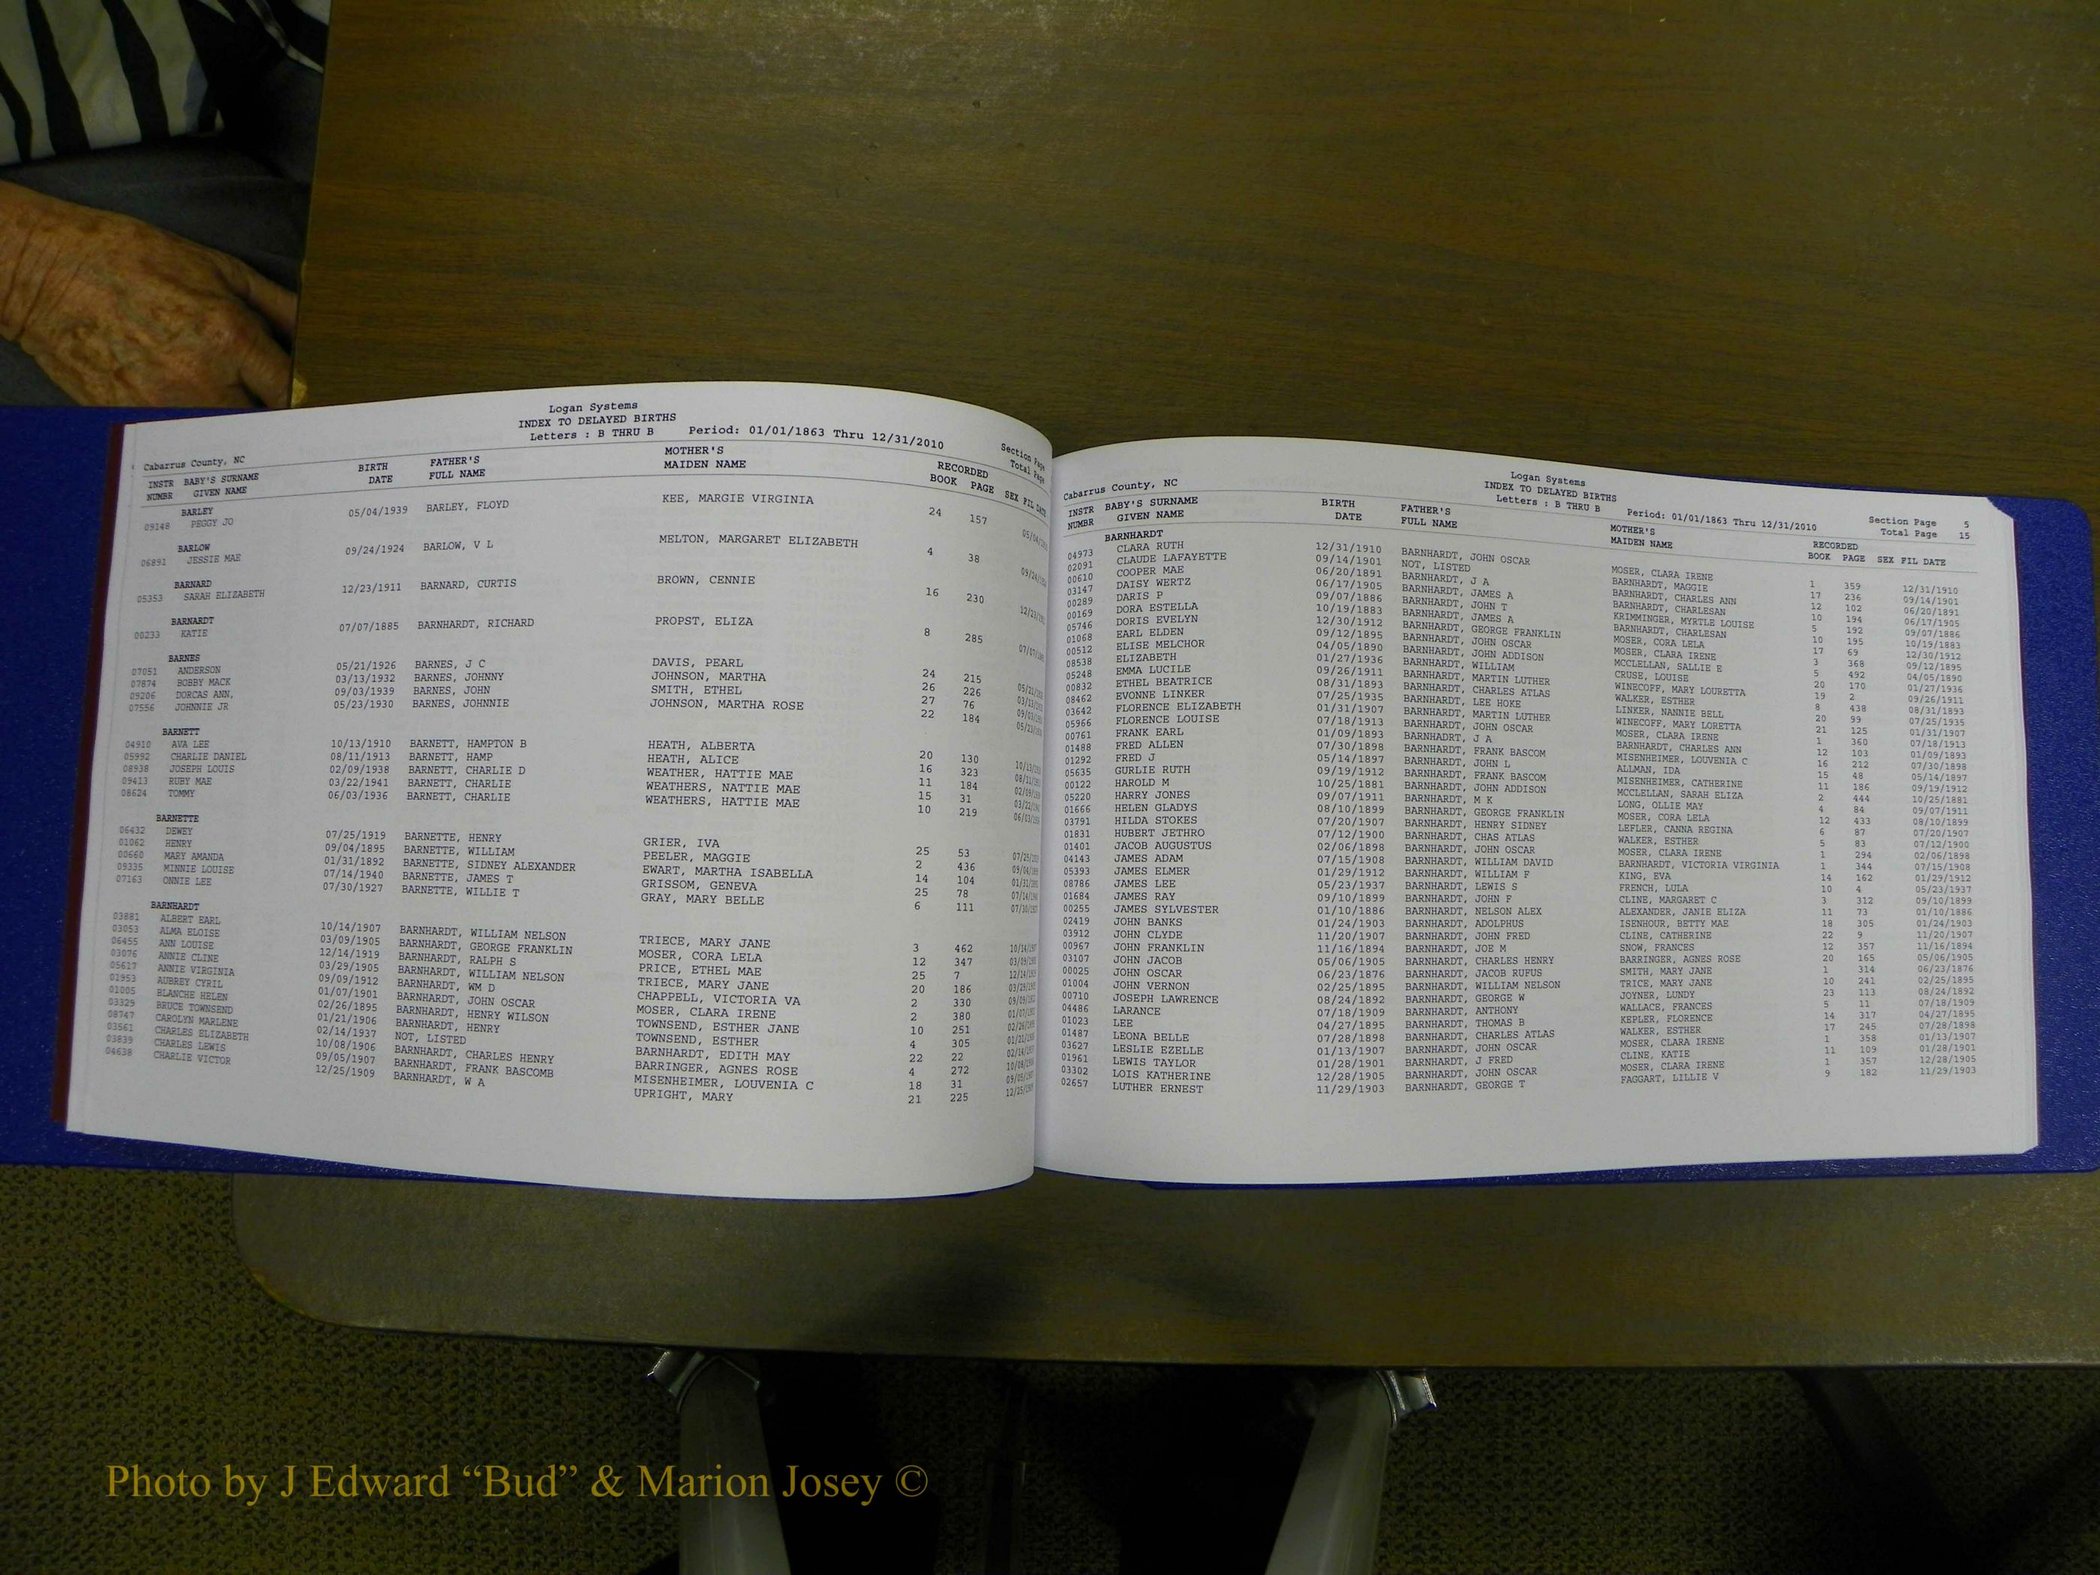 Logan Systems
INDEX TO DELAYED BIRTHS
Letters : B THRU B Period: 01/01/1863 Thru 12/31/2010
Section Page
Total Page
Cabarrus County, NC
INSTR BABY'S SURNAME BIRTH FATHER'S MOTHER'S RECORDED
NUMBR GIVEN NAME DATE FULL NAME MAIDEN NAME BOOK PAGE SEX FIL DATE
BARLEY
09148 PEGGY JO 05/04/1939 BARLEY, FLOYD KEE, MARGIE VIRGINIA 24 157
BARLOW
06891 JESSIE MAE 09/24/1924 BARLOW, V L MELTON, MARGARET ELIZABETH 4 38
BARNARD
05353 SARAH ELIZABETH 12/23/1911 BARNARD, CURTIS BROWN, CENNIE 16 230
BARNARDT
00233 KATIE 07/07/1885 BARNHARDT, RICHARD PROPST, ELIZA 8 285
BARNES
07051 ANDERSON 05/21/1926 BARNES, J C DAVIS, PEARL 24 215
07874 BOBBY MACK 03/13/1932 BARNES, JOHNNY JOHNSON, MARTHA 26 226
09206 DORCAS ANN, 09/03/1939 BARNES, JOHN SMITH, ETHEL 27 76
07556 JOHNNIE JR 05/23/1930 BARNES, JOHNNIE JOHNSON, MARTHA ROSE 22 184
BARNETT
04910 AVA LEE 10/13/1910 BARNETT, HAMPTON B HEATH, ALBERTA 20 130
05992 CHARLIE DANIEL 08/11/1913 BARNETT, HAMP HEATH, ALICE 16 323
08938 JOSEPH LOUIS 02/09/1938 BARNETT, CHARLIE D WEATHER, HATTIE MAE 11 184
09413 RUBY MAE 03/22/1941 BARNETT, CHARLIE WEATHERS, NATTIE MAE 15 31
08624 TOMMY 06/03/1936 BARNETT, CHARLIE WEATHERS, HATTIE MAE 10 219
BARNETTE
06432 DEWEY 07/25/1919 BARNETTE, HENRY GRIER, IVA 25 53
01062 HENRY 09/04/1895 BARNETTE, WILLIAM PEELER, MAGGIE 2 436
00660 MARY AMANDA 01/31/1892 BARNETTE, SIDNEY ALEXANDER EWART, MARTHA ISABELLA 14 104
09335 MINNIE LOUISE 07/14/1940 BARNETTE, JAMES T GRISSOM, GENEVA 25 78
07163 ONNIE LEE 07/30/1927 BARNETTE, WILLIE T GRAY, MARY BELLE 6 111
BARNHARDT
03881 ALBERT EARL 10/14/1907 BARNHARDT, WILLIAM NELSON TRIECE, MARY JANE 3 462
03053 ALMA ELOISE 03/09/1905 BARNHARDT, GEORGE FRANKLIN MOSER, CORA LELA 12 347
06455 ANN LOUISE 12/14/1919 BARNHARDT, RALPH S PRICE, ETHEL MAE 25 7
03076 ANNIE CLINE 03/29/1905 BARNHARDT, WILLIAM NELSON TRIECE, MARY JANE 20 186
05617 ANNIE VIRGINIA 09/09/1912 BARNHARDT, WM D CHAPPELL, VICTORIA VA 2 330
01953 AUBREY CYRIL 01/07/1901 BARNHARDT, JOHN OSCAR MOSER, CLARA IRENE 2 380
01005 BLANCHE HELEN 02/26/1895 BARNHARDT, HENRY WILSON TOWNSEND, ESTHER JANE 10 251
03329 BRUCE TOWNSEND 01/21/1906 BARNHARDT, HENRY TOWNSEND, ESTHER 4 305
08747 CAROLYN MARLENE 02/14/1937 NOT, LISTED BARNHARDT, EDITH MAY 22 22
03561 CHARLES ELIZABETH 10/08/1906 BARNHARDT, CHARLES HENRY BARRINGER, AGNES ROSE 4 272
03839 CHARLES LEWIS 09/05/1907 BARNHARDT, FRANK BASCOMB MISENHEIMER, LOUVENIA C 18 31
04638 CHARLIE VICTOR 12/25/1909 BARNHARDT, W A UPRIGHT, MARY 21 225
Logan Systems
INDEX TO DELAYED BIRTHS
Letters : B THRU B Period: 01/01/1863 Thru 12/31/2010
Section Page 5
Total Page 15
Cabarrus County, NC
INSTR BABY'S SURNAME BIRTH FATHER'S MOTHER'S RECORDED
NUMBR GIVEN NAME DATE FULL NAME MAIDEN NAME BOOK PAGE SEX FIL DATE
BARNHARDT
04973 CLARA RUTH 12/31/1910 BARNHARDT, JOHN OSCAR MOSER, CLARA IRENE 1 359 12/31/1910
02091 CLAUDE LAFAYETTE 09/14/1901 NOT, LISTED BARNHARDT, MAGGIE 17 236 09/14/1901
00610 COOPER MAE 06/20/1891 BARNHARDT, J A BARNHARDT, CHARLES ANN 12 102 06/20/1891
03147 DAISY WERTZ 06/17/1905 BARNHARDT, JAMES A BARNHARDT, CHARLESAN 10 194 06/17/1905
00289 DARIS P 09/07/1886 BARNHARDT, JOHN T KRIMMINGER, MYRTLE LOUISE 5 192 09/07/1886
00169 DORA ESTELLA 10/19/1883 BARNHARDT, JAMES A BARNHARDT, CHARLESAN 10 195 10/19/1883
05746 DORIS EVELYN 12/30/1912 BARNHARDT, GEORGE FRANKLIN MOSER, CORA LELA 17 69 12/30/1912
01068 EARL ELDEN 09/12/1895 BARNHARDT, JOHN OSCAR MOSER, CLARA IRENE 3 368 09/12/1895
00512 ELISE MELCHOR 04/05/1890 BARNHARDT, JOHN ADDISON MCCLELLAN, SALLIE E 5 492 04/05/1890
08538 ELIZABETH 01/27/1936 BARNHARDT, WILLIAM CRUSE, LOUISE 20 170 01/27/1936
05248 EMMA LUCILE 09/26/1911 BARNHARDT, MARTIN LUTHER WINECOFF, MARY LOURETTA 19 2 09/26/1911
00832 ETHEL BEATRICE 08/31/1893 BARNHARDT, CHARLES ATLAS WALKER, ESTHER 8 438 08/31/1893
08462 EVONNE LINKER 07/25/1935 BARNHARDT, LEE HOKE LINKER, NANNIE BELL 20 99 07/25/1935
03642 FLORENCE ELIZABETH 01/31/1907 BARNHARDT, MARTIN LUTHER WINECOFF, MARY LORETTA 21 125 01/31/1907
05966 FLORENCE LOUISE 07/18/1913 BARNHARDT, JOHN OSCAR MOSER, CLARA IRENE 1 360 07/18/1913
00761 FRANK EARL 01/09/1893 BARNHADRT, J A BARNHARDT, CHARLES ANN 12 103 01/09/1893
01488 FRED ALLEN 07/30/1898 BARNHARDT, FRANK BASCOM MISENHEIMER, LOUVENIA C 16 212 07/30/1898
01292 FRED J 05/14/1897 BARNHARDT, JOHN L ALLMAN, IDA 15 48 05/14/1897
05635 GURLIE RUTH 09/19/1912 BARNHARDT, FRANK BASCOM MISENHEIMER, CATHERINE 11 186 09/19/1912
00122 HAROLD M 10/25/1881 BARNHARDT, JOHN ADDISON MCCLELLAN, SARAH ELIZA 2 444 10/25/1881
05220 HARRY JONES 09/07/1911 BARNHARDT, M K LONG, OLLIE MAY 4 84 09/07/1911
01666 HELEN GLADYS 08/10/1899 BARNHARDT, GEORGE FRANKLIN MOSER, CORA LELA 12 433 08/10/1899
03791 HILDA STOKES 07/20/1907 BARNHARDT, HENRY SIDNEY LEFLER, CANNA REGINA 6 87 07/20/1907
01831 HUBERT JETHRO 07/12/1900 BARNHARDT, CHAS ATLAS WALKER, ESTHER 5 83 07/12/1900
01401 JACOB AUGUSTUS 02/06/1898 BARNHARDT, JOHN OSCAR MOSER, CLARA IRENE 1 294 02/06/1898
04143 JAMES ADAM 07/15/1908 BARNHARDT, WILLIAM DAVID BARNHARDT, VICTORIA VIRGINIA 1 344 07/15/1908
05393 JAMES ELMER 01/29/1912 BARNHARDT, WILLIAM F KING, EVA 14 162 01/29/1912
08786 JAMES LEE 05/23/1937 BARNHARDT, LEWIS S FRENCH, LULA 10 4 05/23/1937
01684 JAMES RAY 09/10/1899 BARNHARDT, JOHN F CLINE, MARGARET C 3 312 09/10/1899
00255 JAMES SYLVESTER 01/10/1886 BARNHARDT, NELSON ALEX ALEXANDER, JANIE ELIZA 11 73 01/10/1886
02419 JOHN BANKS 01/24/1903 BARNHARDT, ADOLPHUS ISENHOUR, BETTY MAE 18 305 01/24/1903
03912 JOHN CLYDE 11/20/1907 BARNHARDT, JOHN FRED CLINE, CATHERINE 22 9 11/20/1907
00967 JOHN FRANKLIN 11/16/1894 BARNHARDT, JOE M SNOW, FRANCES 12 357 11/16/1894
03107 JOHN JACOB 05/06/1905 BARNHARDT, CHARLES HENRY BARRINGER, AGNES ROSE 20 165 05/06/1905
00025 JOHN OSCAR 06/23/1876 BARNHARDT, JACOB RUFUS SMITH, MARY JANE 1 314 06/23/1876
01004 JOHN VERNON 02/25/1895 BARNHARDT, WILLIAM NELSON TRICE, MARY JANE 10 241 02/25/1895
00710 JOSEPH LAWRENCE 08/24/1892 BARNHARDT, GEORGE W JOYNER, LUNDY 23 113 08/24/1892
04486 LARANCE 07/18/1909 BARNHARDT, ANTHONY WALLACE, FRANCES 5 11 07/18/1909
01023 LEE 04/27/1895 BARNHARDT, THOMAS B KEPLER, FLORENCE 14 317 04/27/1895
01487 LEONA BELLE 07/28/1898 BARNHARDT, CHARLES ATLAS WALKER, ESTHER 17 245 07/28/1898
03627 LESLIE EZELLE 01/13/1907 BARNHARDT, JOHN OSCAR MOSER, CLARA IRENE 1 358 01/13/1907
01961 LEWIS TAYLOR 01/28/1901 BARNHARDT, J FRED CLINE, KATIE 11 109 01/28/1901
03302 LOIS KATHERINE 12/28/1905 BARNHARDT, JOHN OSCAR MOSER, CLARA IRENE 1 357 12/28/1905
02657 LUTHER ERNEST 11/29/1903 BARNHARDT, GEORGE T FAGGART, LILLIE V 9 182 11/29/1903
Photo by J Edward “Bud” & Marion Josey ©